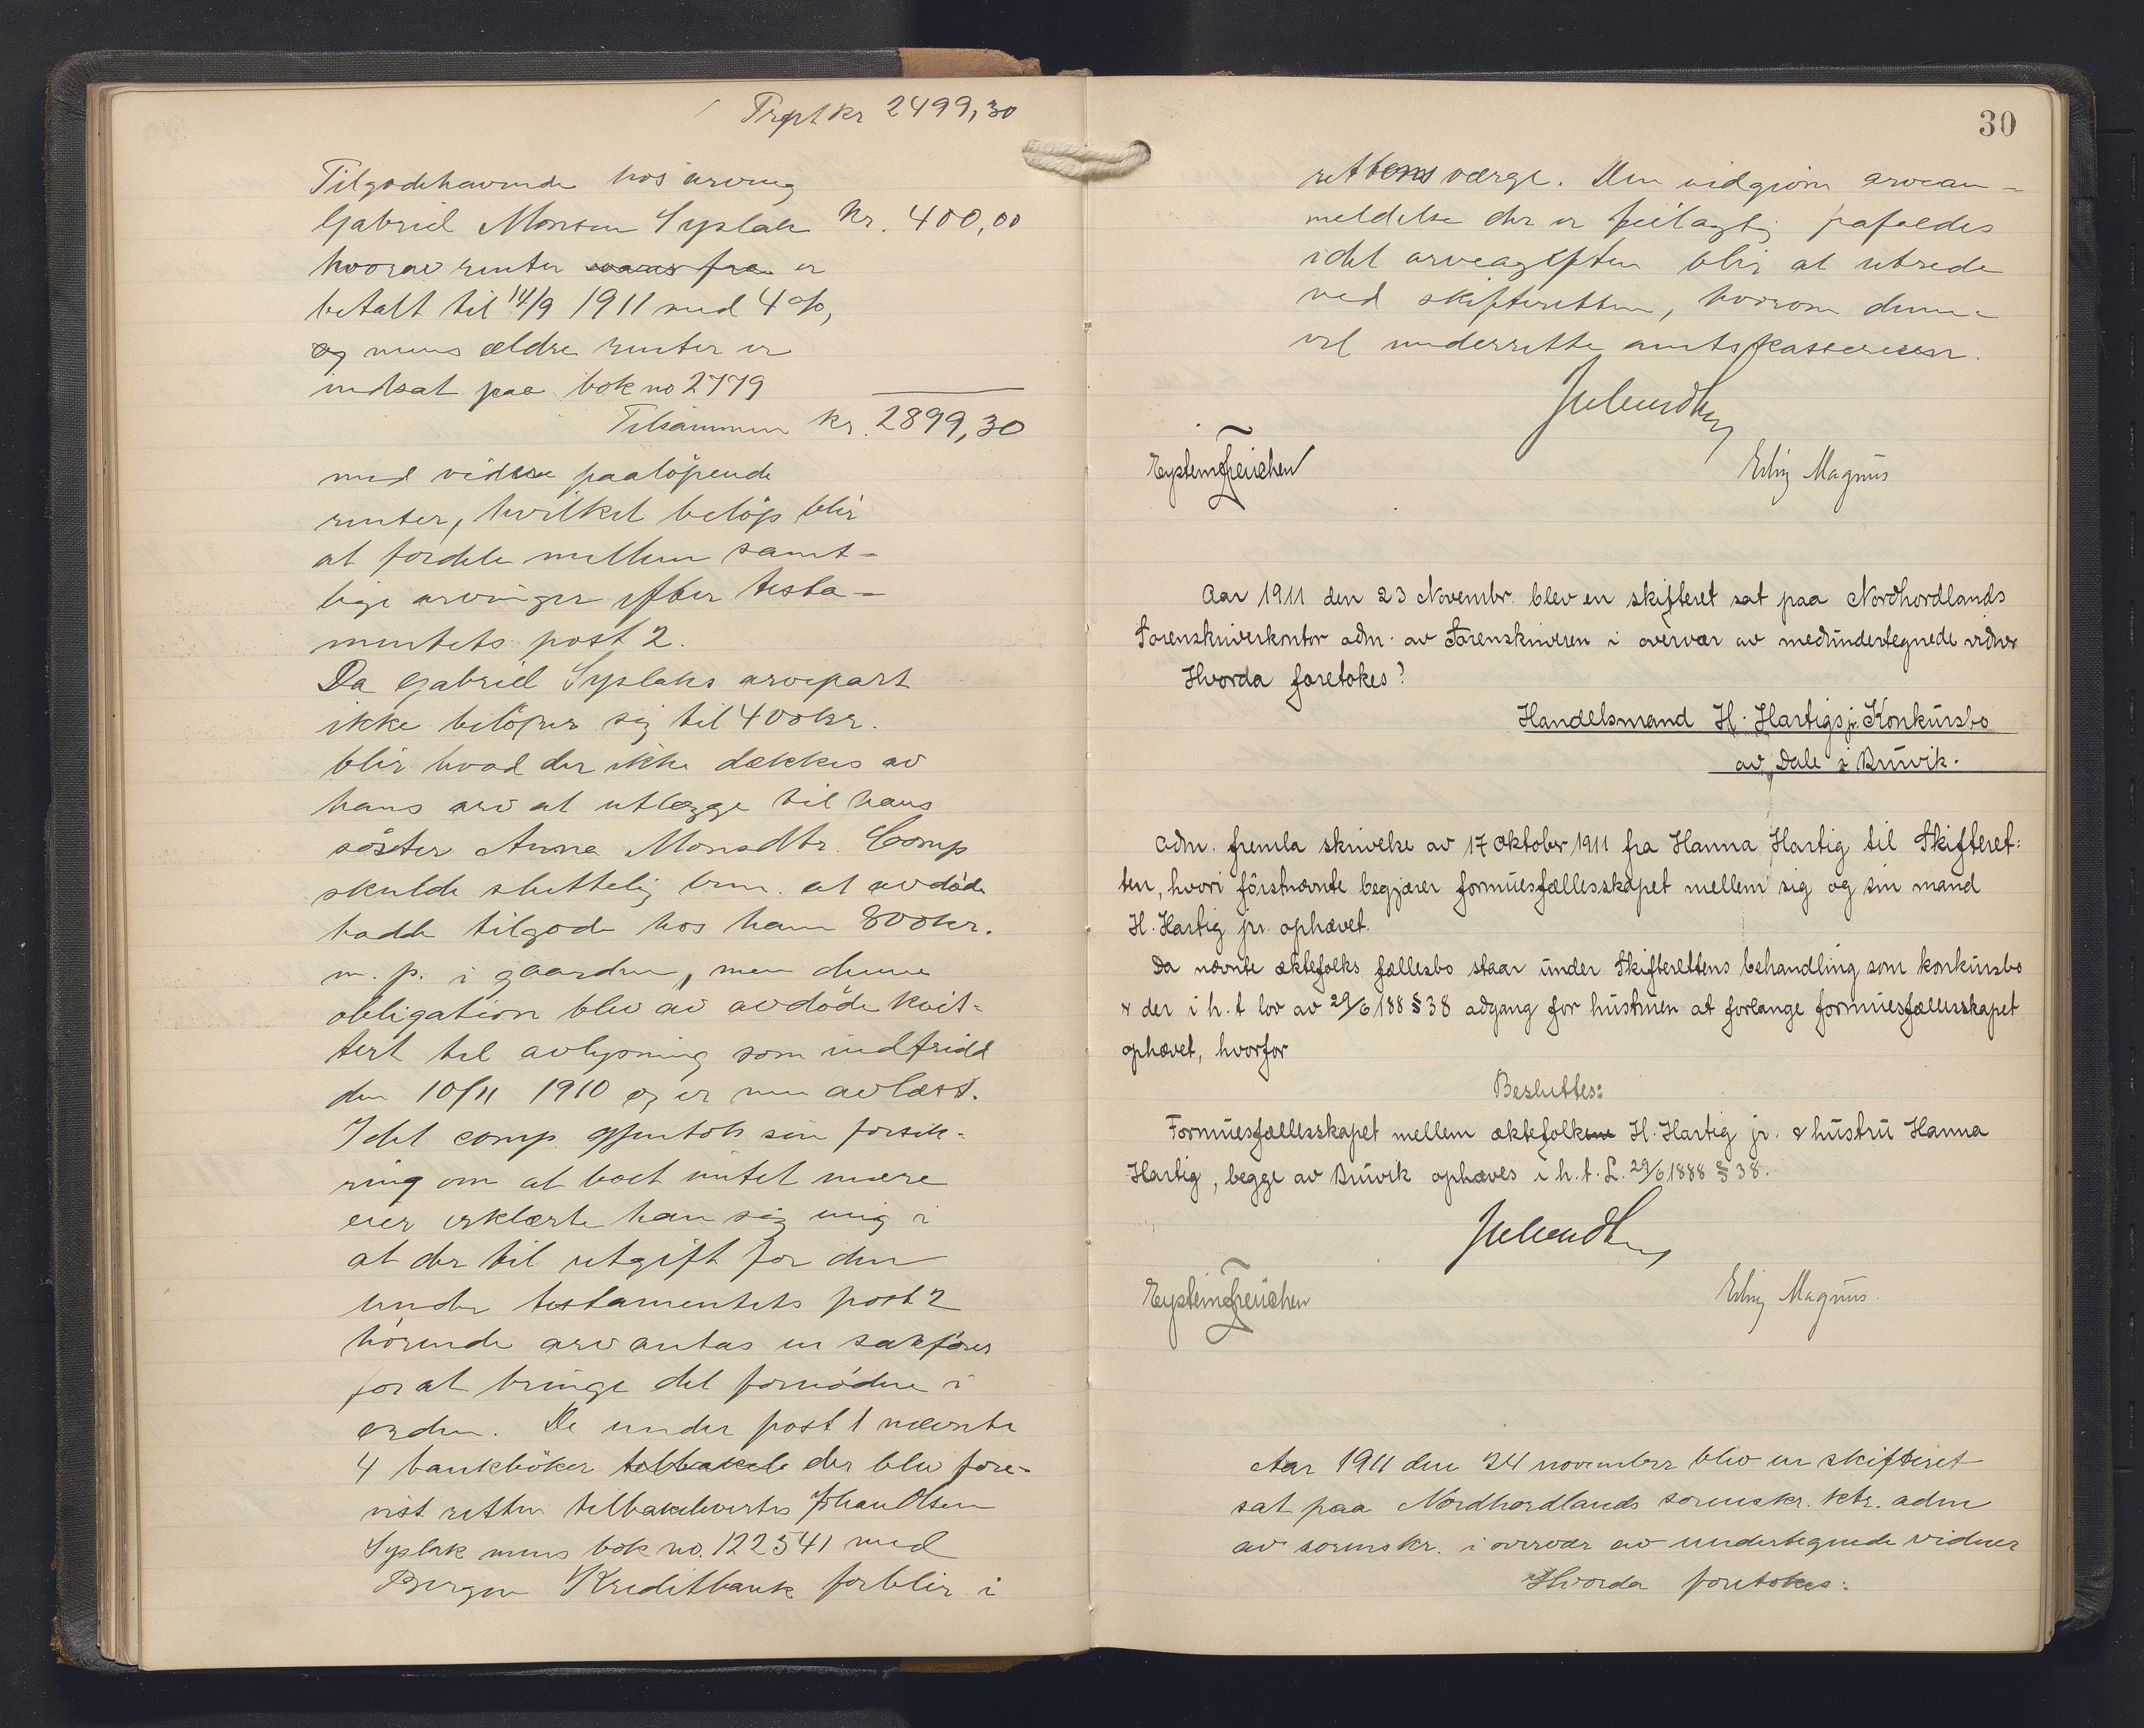 Trspt kr 2499,30
Tilgodehavende hos arving
Gabriel Monsen Syslak Kr. 400,00
hvorav renter er
betalt til 14/9 1911 med 4 %,
og mens ældre renter er
indsat paa bok no 2779
Tilsammen kr. 2899,30
med videre paaløpende
renter, hvilket beløp blir
at fordele mellem samt-
lige arvinger efter testa-
mentets post 2.
Da Gabriel Syslaks arvepart
ikke beløper sig til 400 kr.
blir hvad der ikke dækkes av
hans arv at utlægge til hans
søster Anna Monsdtr. Comp
skulde sluttelig bem. at avdöde
hadde tilgode hos ham 800 kr.
m. p. i gaarden, men denne
obligation blev av avdöde kvit-
tert til avlysning som indfridd
den 10/11 1910 og er nu avlæst.
Idet comp. gjentok sin forsik-
ring om at boet intet mere
eier erklærte han sig enig i
at der til utgift for den
under testamentets post 2
hörende arv antas en sakförer
for at bringe det fornødne i
orden. De under post 1 nævnte
4 bankböker tilbakele der blev fore-
vist retten tilbakelevertes Johan Olsen
Syslak mens bok no. 122541 med
Bergen Kreditbank forblir i
30
rettens værge. Den vidgivne arvean-
meldelse der er feilagtig pafaldes
idet arveavgiften blir at utrede
ved skifteretten, hvorom denne
vil underrette amtskassereren.
Eystein Feuchen
Erling Magnus
Aar 1911 den 23 Novembr. blev en skifteret sat paa Nordhordlands
Sorenskriverkontor adm. av Sorenskriveren i overvær av medundertegnede vidner
Hvorda foretokes?
Handelsmand H. Hartigs jr. Konkursbo
av Dale i Bruvik.
Adm. fremla skrivelse av 17 oktober 1911 fra Hanna Hartig til Skifteret:
ten, hvori förstnævnte begjærer formuesfællesskapet mellem sig og sin mand
H. Hartig jr. ophævet.
Da nævnte ektefolks fællesbo staar under Skifterettens behandling som konkursbo
& der i h. t lov av 29/6 188 § 38 adgang for hustruen at forlange formuesfællesskapet
ophævet, hvorfor
Besluttes:
Formuesfællesskapet mellem ektefolkene H. Hartig jr. & hustru Hanna
Hartig, begge av Bruvik ophæves i h. t. L. 29/6 1888 § 38.
Eystein Feuchen
Erling Magnus.
Aar 1911 den 24 november blev en skifteret
sat paa Nordhordlands sorenskr. ktr. adm
av sorenskr. i overvær av undertegnede vidner
Hvorda foretokes: